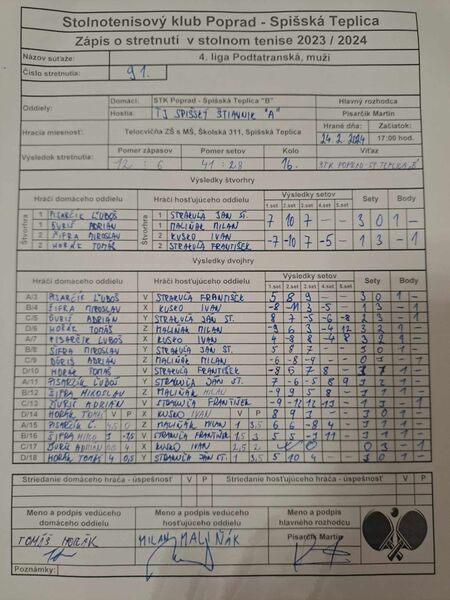 Stolnotenisový klub Poprad - Spišská Teplica
Zápis o stretnutí v stolnom tenise 2023 / 2024
Názov súťaže: 4. liga Podtatranská, muži
Číslo stretnutia: 91.
Oddiely: Domáci: STK Poprad - Spišská Teplica "B" Hlavný rozhodca
Hostia: TJ SPIŠSKÝ ŠTIAVNIK "A" Pisarčík Martin
Hracia miesnosť: Telocvičňa ZŠ s MŠ, Školská 311, Spišská Teplica Hrané dňa: 24.2.2024 Začiatok: 17:00 hod.
Výsledok stretnutia: Pomer zápasov 12 : 6 Pomer setov 41 : 28 Kolo 16. Víťaz STK POPRAD-SP.TEPLICA "B"
Výsledky štvorhry
Hráči domáceho oddielu Hráči hosťujúceho oddielu Výsledky setov Sety Body
1.set 2.set 3.set 4.set 5.set
Štvorhra 1 PISARČÍK ĽUBOŠ 1 STRAKUĽA JÁN ST. 7 10 7 - - 3 0 1 -
1 ĎURIŠ ADRIÁN 1 MALIŇÁK MILAN
2 ŽIFRA MIROSLAV 2 KUSKO IVAN -7 -10 7 -5 - 1 3 - 1
2 HORÁK TOMÁŠ 2 STRAKUĽA FRANTIŠEK
Výsledky dvojhry
Hráči domáceho oddielu Hráči hosťujúceho oddielu Výsledky setov Sety Body
1.set 2.set 3.set 4.set 5.set
A/3 PISARČÍK ĽUBOŠ V STRAKUĽA FRANTIŠEK 5 8 9 - - 3 0 1 -
B/4 ŽIFRA MIROSLAV X KUSKO IVAN
C/5 ĎURIŠ ADRIÁN Y STRAKUĽA JÁN ST. 8 7 -5 -8 6 3 2 1 -
D/6 HORÁK TOMÁŠ Z MALIŇÁK MILAN -9 6 3 -4 12 3 2 1 -
A/7 PISARČÍK ĽUBOŠ X KUSKO IVAN 4 -8 8 -4 8 3 2 1 -
B/8 ŽIFRA MIROSLAV Y STRAKUĽA JÁN ST. 5 8 3 - - 3 0 1 -
C/9 ĎURIŠ ADRIÁN Z MALIŇÁK MILAN -6 -8 -9 - - 0 3 - 1
D/10 HORÁK TOMÁŠ V STRAKUĽA FRANTIŠEK -8 5 7 8 - 3 1 1 -
A/11 PISARČÍK ĽUBOŠ Y STRAKUĽA JÁN ST. 7 -6 -5 8 9 3 2 1 -
B/12 ŽIFRA MIROSLAV Z MALIŇÁK MILAN -9 9 5 8 - 3 1 1 -
C/13 ĎURIŠ ADRIÁN V STRAKUĽA FRANTIŠEK
D/14 HORÁK TOMÁŠ V P X KUSKO IVAN V P 8 9 - - 3 0 1 -
A/15 PISARČÍK Ľ. Z MALIŇÁK MILAN 1 3,5 6 6 -8 4 - 3 1 1 -
B/16 ŽIFRA MIRO V STRAKUĽA
C/17 ĎURIŠ ADRIÁN X KUSKO IVAN 0 3 - 1
D/18 HORÁK TOMÁŠ 4 0,5 Y STRAKUĽA JÁN ST. 1 3,5 5 10 4 - - 3 0 1 -
Striedanie domáceho hráča - úspešnosť V P Striedanie hosťujúceho hráča - úspešnosť V P
Meno a podpis vedúceho domáceho oddielu Meno a podpis vedúceho hosťujúceho oddielu Meno a podpis hlavného rozhodcu
TOMÁŠ HORÁK MILAN MALIŇÁK Pisarčík Martin
Poznámky: